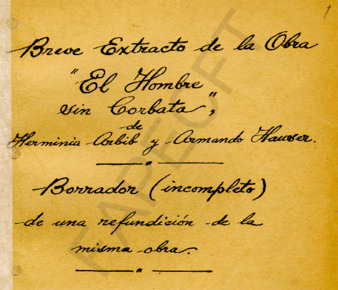 1
Breve Extracto de la Obra
"El Hombre
sin Corbata",
de
Herminia Arbib y Armando Hauser.
Borrador (incompleto)
de una refundición de la
misma obra.